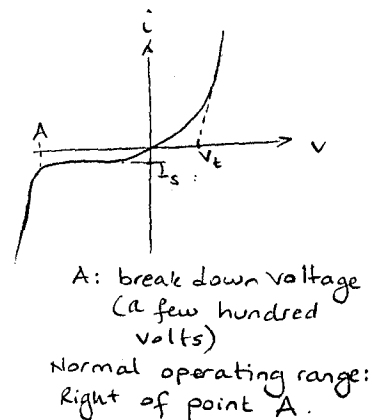 i
A
V
Vt
Is
A: break down voltage
(a few hundred
volts)
Normal operating range:
Right of point A.